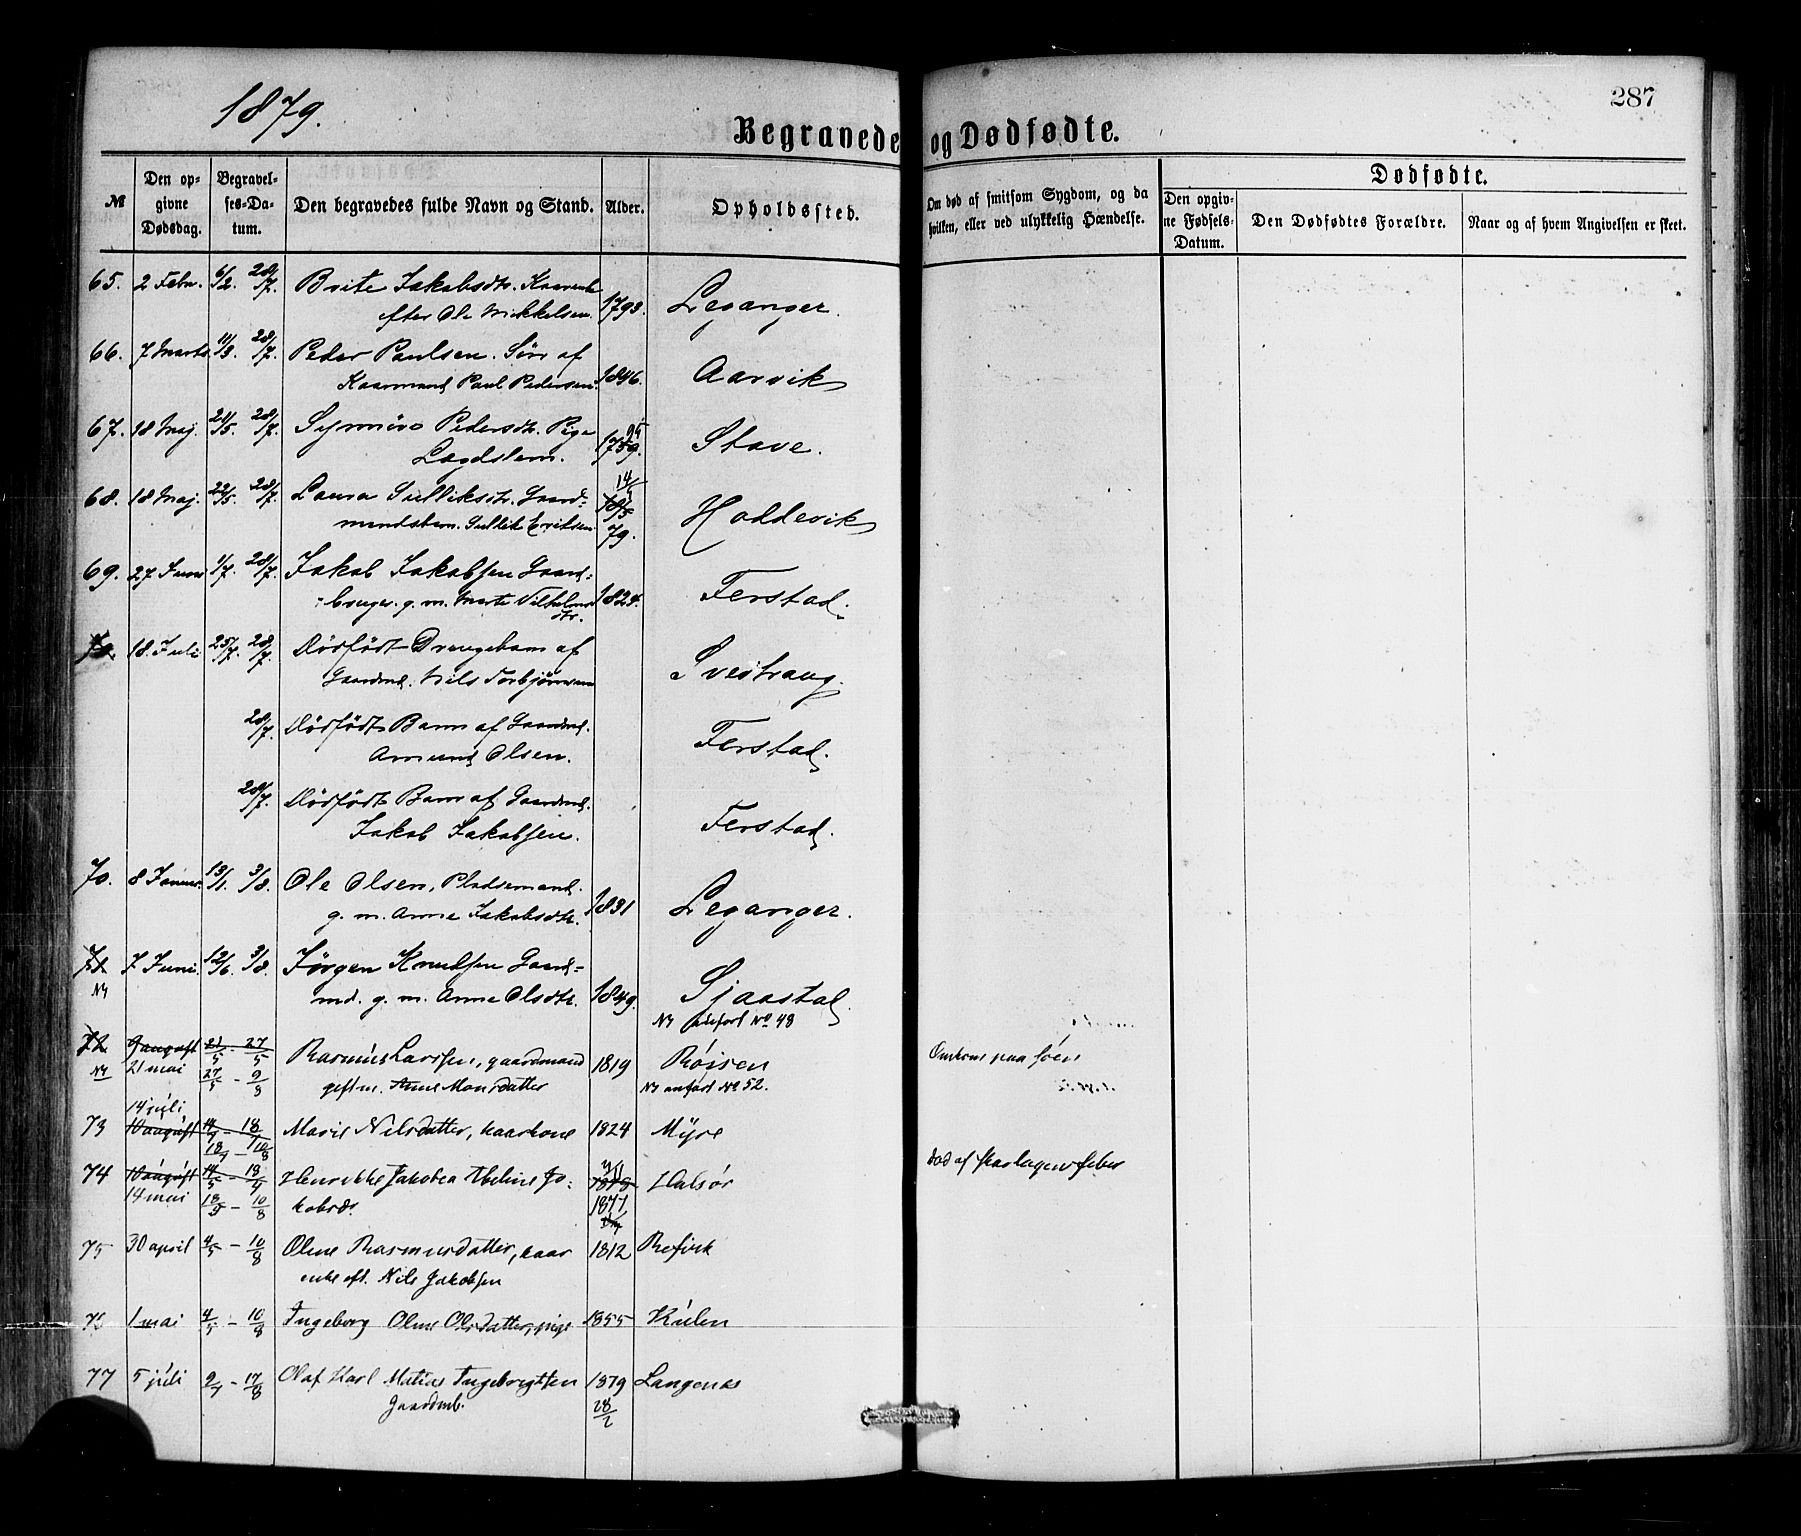 1879.
287
Begravede og Dødfødte.
№
Den opgivne Dødsdag.
Begravelses-Datum.
Den begravedes fulde Navn og Stand.
Alder.
Opholdssted.
Om død af smitsom Sygdom, og da hvilken, eller ved ulykkelig Hændelse.
Dødfødte.
Den opgivne Fødsels-Datum.
Den Dødfødtes Forældre.
Naar og af hvem Angivelsen er skeet.
65. 2 Febr. 6/2. 28/7. Brite Jakobsdtr. Kaarenke
efter Ole Mikkelsen. 1793. Leganger.
66. 7 Marts 11/3. 28/7. Peder Paulsen. Søn af
Kaarmand Paul Pedersen. 1846. Aarvik
67. 18 Maj. 21/5. 28/7. Synnøve Pedersdtr. Pige
Lægdslem. 1759. 95 Stave.
68. 18 Maj. 22/5. 28/7. Laura Sulliksdtr. Gaard-
mandsbarn. Sullik Eriksen. 14/5 79. Hoddevik
69. 27 Juni 1/7. 28/7. Jakob Jakobsen Gaard-
bruger. g. m. Marte Vilhelms
dtr. 1824. Ferstad.
70. 18. Juli 25/7. 28/7. Dødfødt Drengebarn af
Gaardmd. Nils Torbjørnsen Svestraug.
28/7. Dødfødt Barn af Gaardmd.
Amund Olsen. Ferstad.
28/7. Dødfødt Barn af Gaardmd.
Jakob Jakobsen. Ferstad.
70. 8 Januar. 13/1. 3/8. Ole Olsen, Pladsemand.
g. m. Anne Jakobsdtr. 1831 Leganger.
71 7 Juni. 12/6. 3/8. Jørgen Knudsen Gaard-
N4 md. g. m. Anne Olsdtr. 1849. Sjaastad.
N4 anført No 48
72 9 august 21/5 - 27/5 Rasmus Larssen, gaardmand 1819 Røisen Omkom paa søen
N4 21 mai 27/5 - 9/8 gift m. Anne Monsdatter N4 anført No 52.
14 juli
73 10 august 14/7 - 18/7 Marie Nilsdatter, kaarkone 1824 Myre
18/7 - 10/8
74 10 august 14/5 - 18/5 Henrikke Jakobea Abeline Ja- Halsør død af Barselfeber
14 mai 18/5 - 10/8 kobsdr. 1877
75 30 april 4/5 - 10/8 Oline Rasmusdatter, kaar 1812 Refvik
enke eft. Nils Jakobsen
76 1 mai 4/5 - 10/8 Ingeborg Oline Olsdatter, pige 1855 Kulen
77 5 juli 9/7 - 17/8 Olaf Karl Matias Ingebrigtsen 1879 Langenes
Gaardmb. 28/2